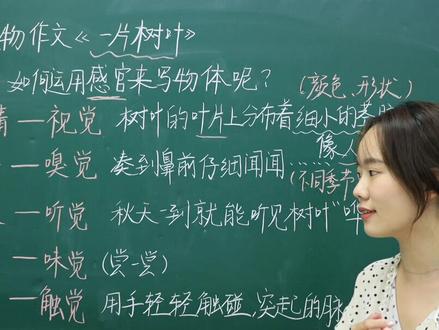 物作文《一片树叶》
如何运用感官来写物体呢？(颜色、形状)
睛—视觉 树叶的叶片上分布着细小的茎
像人
—嗅觉 凑到鼻前仔细闻闻……
(不同季节
—听觉 秋天一到就能听见树叶“哗
—味觉 (尝一尝)
—触觉 用手轻轻触碰,突起的脉